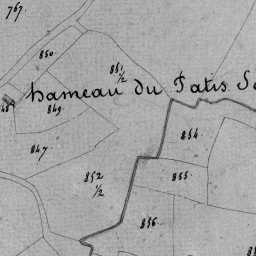 767.
850
851
1/2
hameau du Patis
849.
854
847
852
1/2
855.
856.